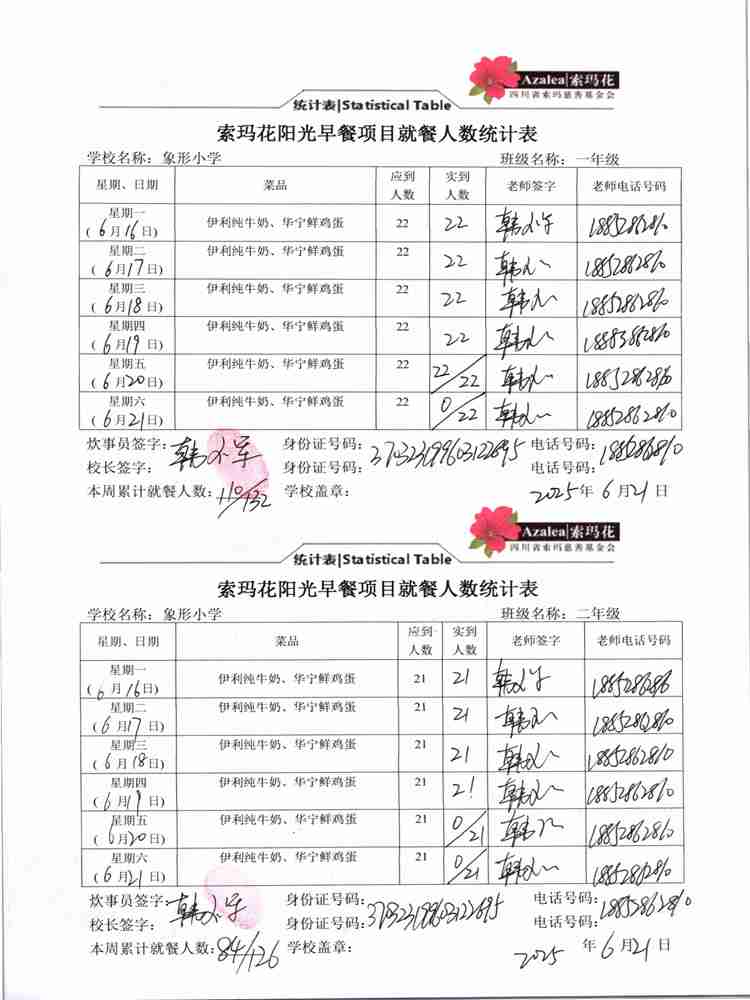 Azalea|索玛花
四川省索玛慈善基金会
统计表|Statistical Table
索玛花阳光早餐项目就餐人数统计表
学校名称：象形小学 班级名称：一年级
星期、日期 菜品 应到人数 实到人数 老师签字 老师电话号码
星期一 (6月16日) 伊利纯牛奶、华宁鲜鸡蛋 22 22
星期二 (6月17日) 伊利纯牛奶、华宁鲜鸡蛋 22 22
星期三 (6月18日) 伊利纯牛奶、华宁鲜鸡蛋 22 22
星期四 (6月19日) 伊利纯牛奶、华宁鲜鸡蛋 22 22
星期五 (6月20日) 伊利纯牛奶、华宁鲜鸡蛋 22 22/22
星期六 (6月21日) 伊利纯牛奶、华宁鲜鸡蛋 22 0/22
炊事员签字： 身份证号码： 电话号码：
校长签字： 身份证号码： 电话号码：
本周累计就餐人数：110/132 学校盖章： 2025年6月21日
Azalea|索玛花
四川省索玛慈善基金会
统计表|Statistical Table
索玛花阳光早餐项目就餐人数统计表
学校名称：象形小学 班级名称：二年级
星期、日期 菜品 应到人数 实到人数 老师签字 老师电话号码
星期一 (6月16日) 伊利纯牛奶、华宁鲜鸡蛋 21 21
星期二 (6月17日) 伊利纯牛奶、华宁鲜鸡蛋 21 21
星期三 (6月18日) 伊利纯牛奶、华宁鲜鸡蛋 21 21
星期四 (6月19日) 伊利纯牛奶、华宁鲜鸡蛋 21 21
星期五 (6月20日) 伊利纯牛奶、华宁鲜鸡蛋 21 0/21
星期六 (6月21日) 伊利纯牛奶、华宁鲜鸡蛋 21 0/21
炊事员签字： 身份证号码： 电话号码：
校长签字： 身份证号码： 电话号码：
本周累计就餐人数：84/126 学校盖章： 2025年6月21日